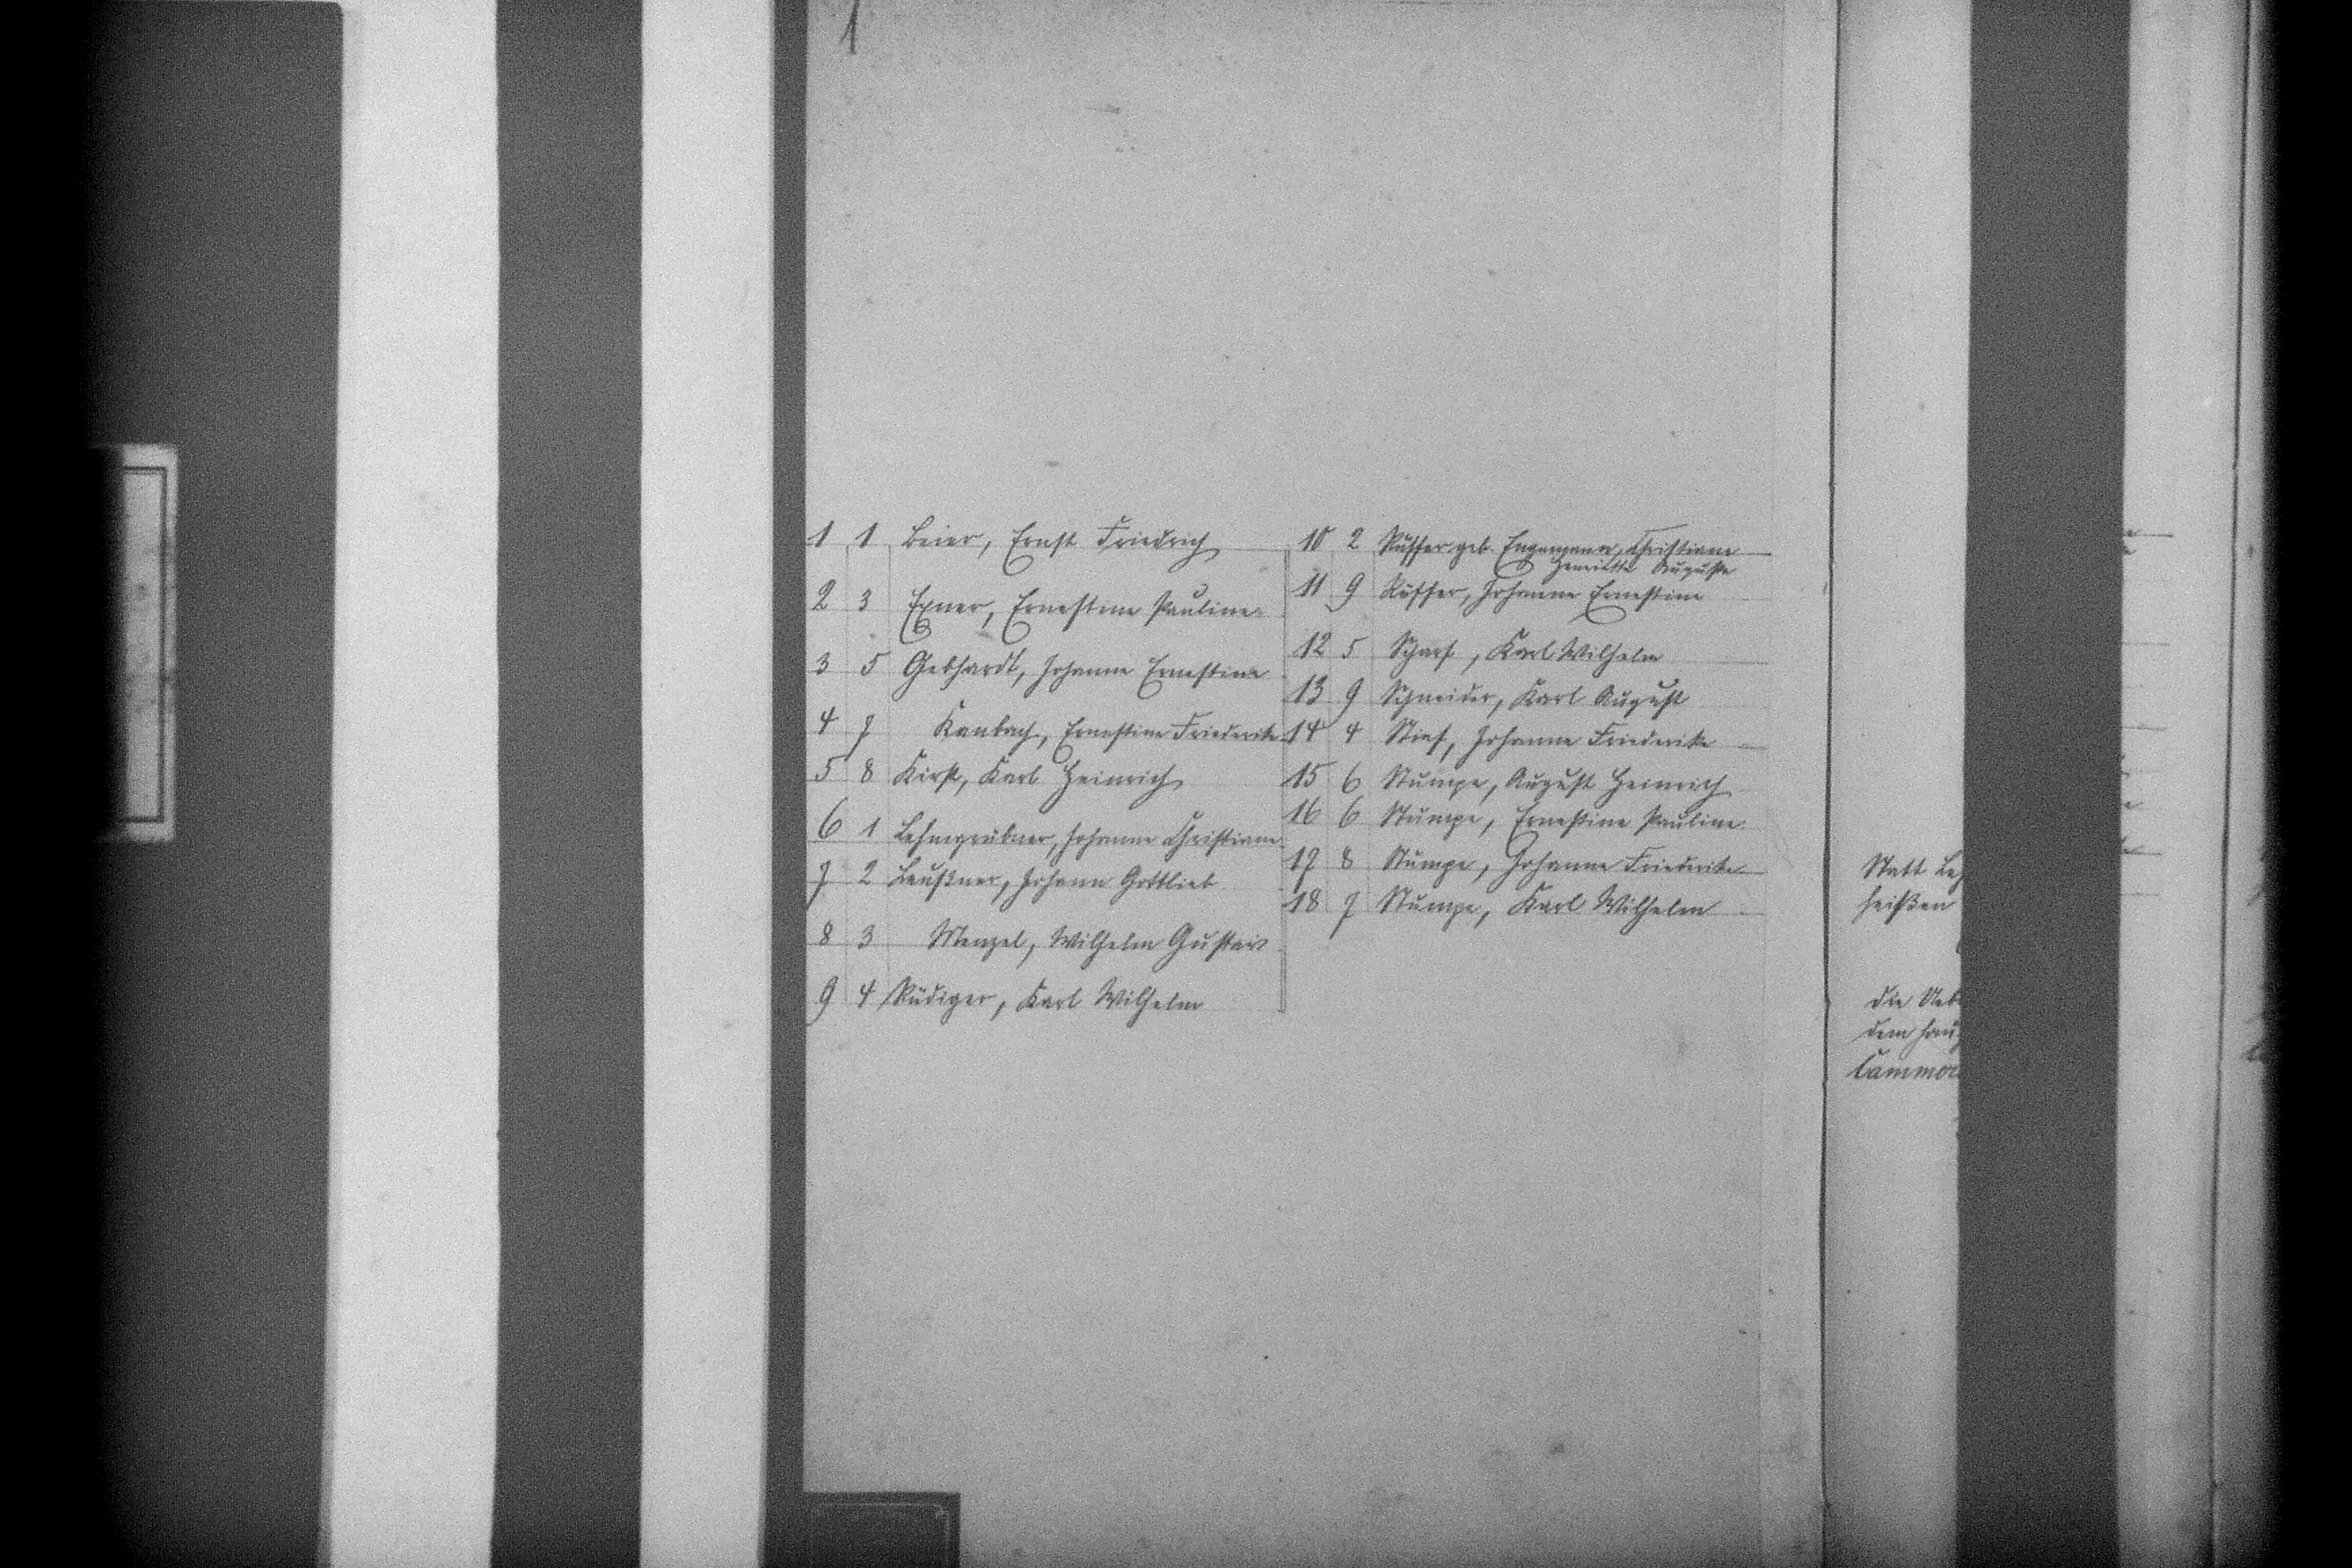 1
1 1 Beier, Ernst Friedrich
2 3 Exner, Ernestine Pauline
3 5 Gebhardt, Johanne Ernestine
4 7 Kanbach, Ernestine Friederike
5 8 Kirst, Karl Heinrich
6 1 Lehngrübner, Johanne Christiane
7 2 Leußner, Johann Gottlieb
8 3 Menzel, Wilhelm Gustav
9 4 Rüdiger, Karl Wilhelm
10 2 Rüffer geb. Engmann, Christiane
Henriette Auguste
11 9 Rüffer, Johanne Ernestine
12 5 Scharf, Karl Wilhelm
13 9 Schneider, Karl August
14 4 Stief, Johanne Friederike
15 6 Stumpe, August Heinrich
16 6 Stumpe, Ernestine Pauline
17 8 Stumpe, Johanne Friederike
18 7 Stumpe, Karl Wilhelm
Statt Leh
heißen
die Ueb
dem Hau
Cammer